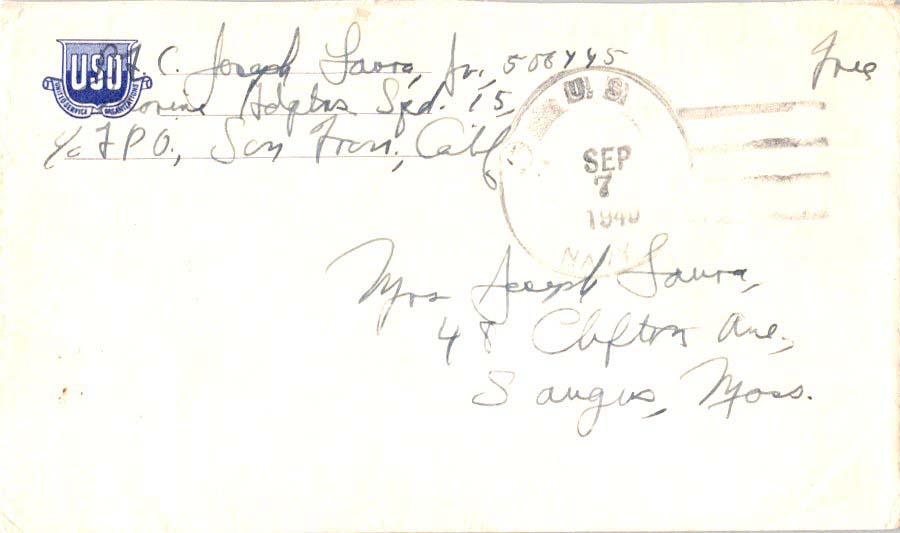 USO
UNITED SERVICE ORGANIZATIONS
C. Joseph Laura, Jr., 506445
Free
Marine Hdqtrs Sqd. 15,
c/o F P O., San Fran., Calif.
U. S.
SEP
7
194
NAVY
Mrs Joseph Laura,
48 Clifton Ave.,
Saugus, Mass.